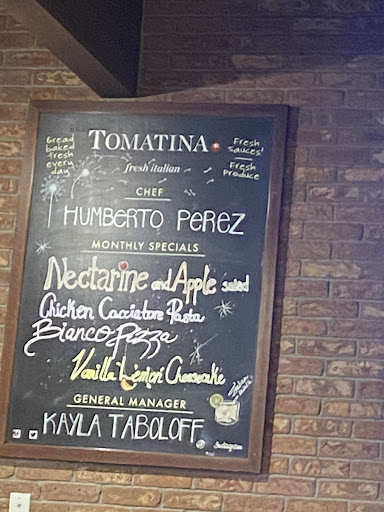 Bread
baked
fresh
every
day
TOMATINA
Fresh
Sauces!
Fresh
Produce
fresh italian
CHEF
HUMBERTO PEREZ
MONTHLY SPECIALS
Nectarine and Apple salad
Chicken Cacciatore Pasta
Bianco Pizza
Vanilla Lemon Cheesecake
GENERAL MANAGER
KAYLA TABOLOFF
Instagram